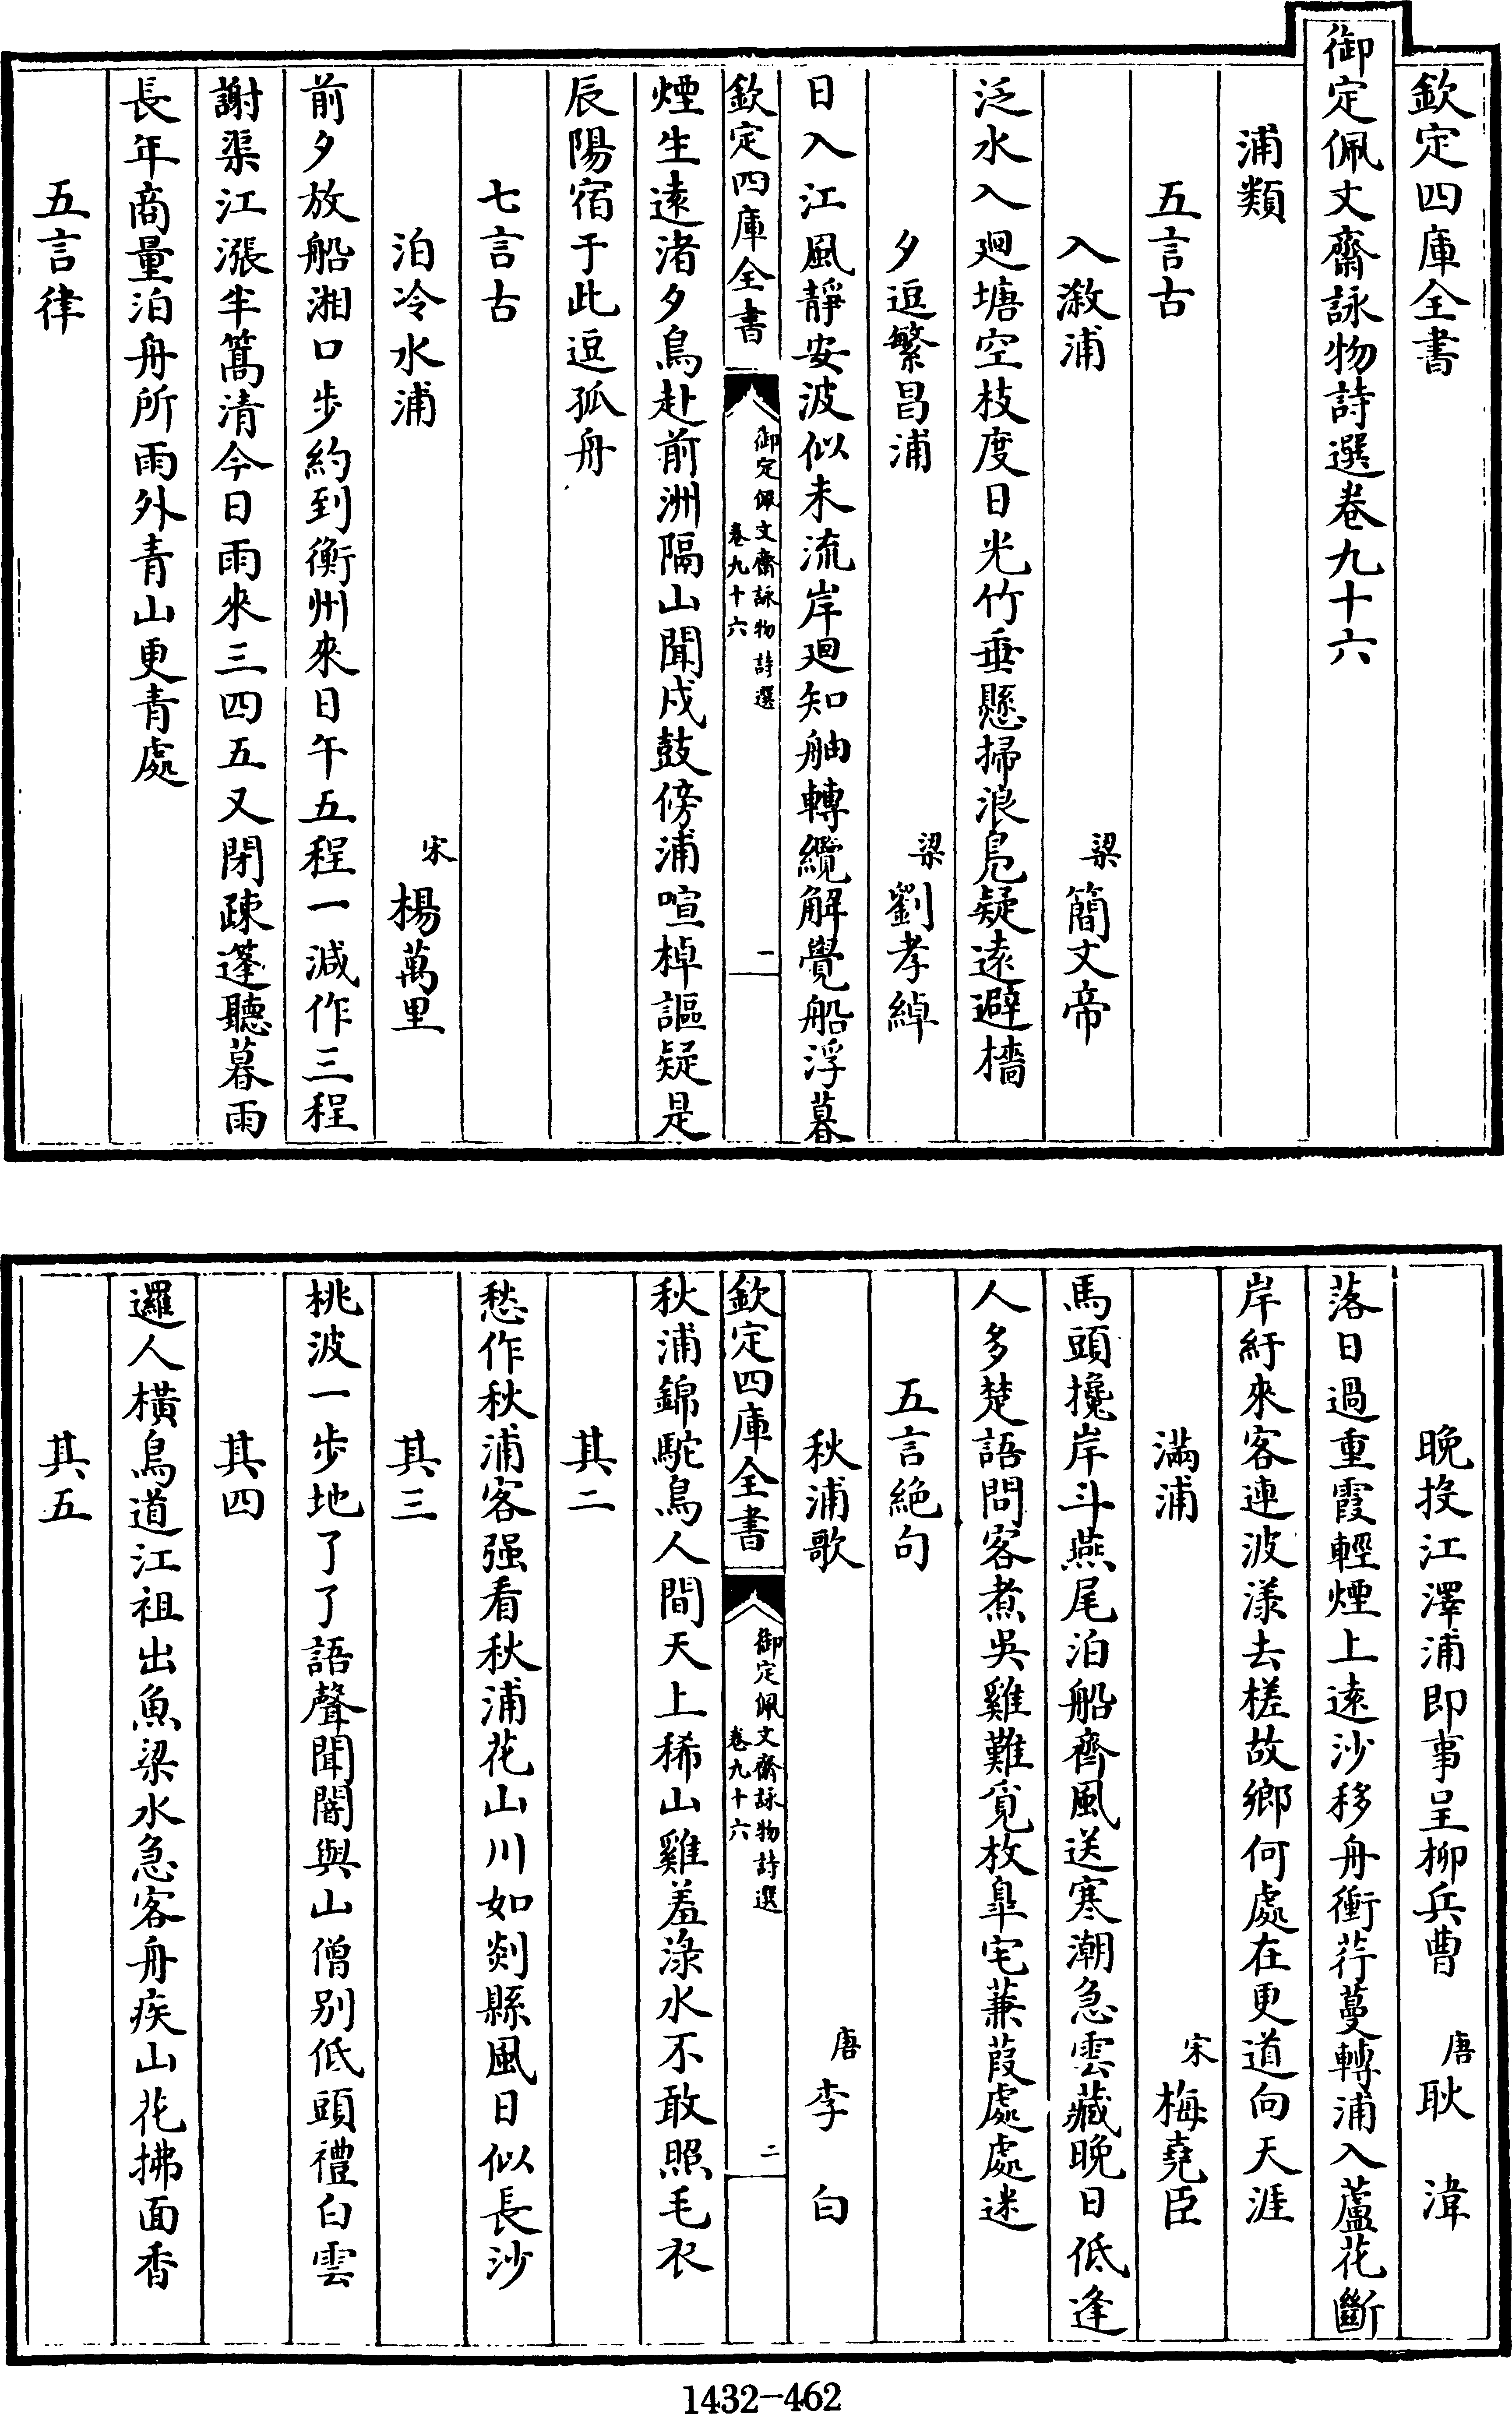 欽定四庫全書
御定佩文齋詠物詩選卷九十六
浦類
五言古
入漵浦 梁簡文帝
泛水入迴塘空枝度日光竹垂懸掃浪鳧疑遠避檣
夕逗繁昌浦 梁劉孝綽
日入江風靜安波似未流岸迴知舳轉纜解覺船浮暮
欽定四庫全書 御定佩文齋詠物詩選 卷九十六 一
煙生遠渚夕鳥赴前洲隔山聞戍鼓傍浦喧棹謳疑是
辰陽宿于此逗孤舟
七言古
泊冷水浦 宋楊萬里
前夕放船湘口步約到衡州來日午五程一減作三程
謝渠江漲半篙清今日雨來三四五又閉疎蓬聽暮雨
長年商量泊舟所雨外青山更青處
五言律
晚投江澤浦即事呈柳兵曹 唐耿湋
落日過重霞輕煙上遠沙移舟衝荇蔓轉浦入蘆花斷
岸紆來客連波漾去槎故鄉何處在更道向天涯
滿浦 宋梅堯臣
馬頭攙岸斗燕尾泊船齊風送寒潮急雲藏晚日低逢
人多楚語問客煮吳雞難覓枚皐宅蒹葭處處迷
五言絕句
秋浦歌 唐李白
欽定四庫全書 御定佩文齋詠物詩選 卷九十六 二
秋浦錦駝鳥人間天上稀山雞羞淥水不敢照毛衣
其二
愁作秋浦客强看秋浦花山川如剡縣風日似長沙
其三
桃波一步地了了語聲聞闇與山僧别低頭禮白雲
其四
邏人橫鳥道江祖出魚梁水急客舟疾山花拂面香
其五
1432-462